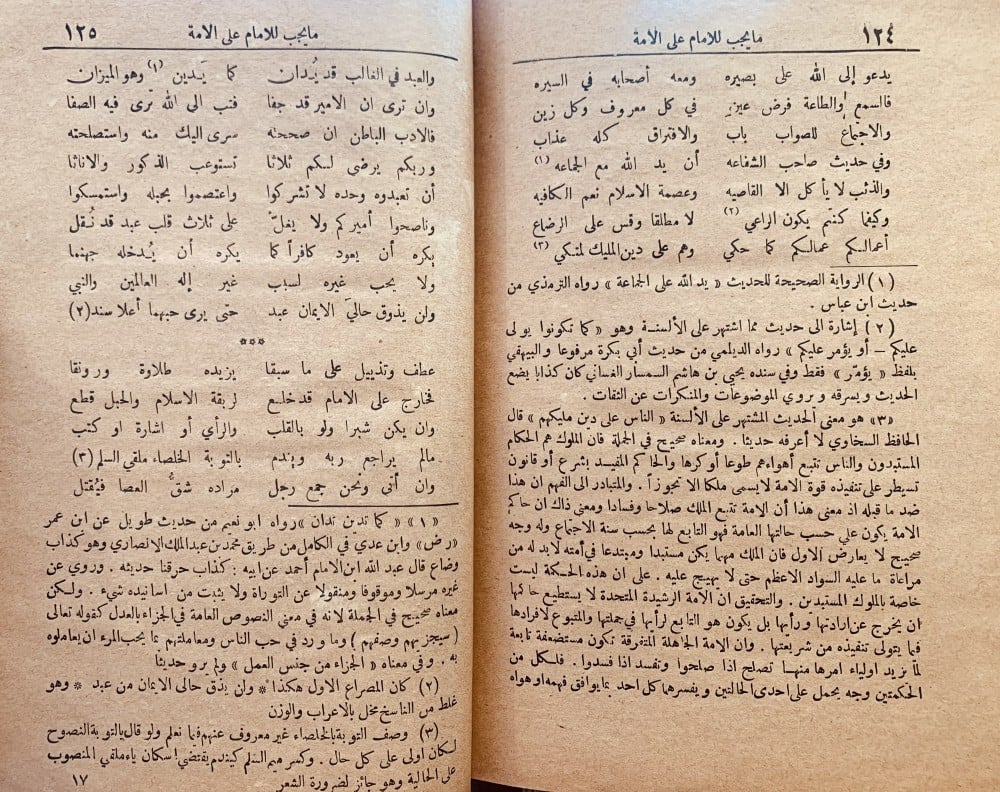 ١٢٤ ما يجب للامام على الأمة
يدعو إلى الله على بصيره ومعه أصحابه في السيره
فالسمع والطاعة فرض عين في كل معروف وكل زين
والاجتماع للصواب باب والافتراق كله عذاب
وفي حديث صاحب الشفاعه أن يد الله مع الجماعه (١)
والذئب لا يأكل الا القاصيه وعصمة الاسلام نعم الكافيه
وكيفما كنتم يكون الراعي (٢) لا مطلقا وقس على الرضاع
أعمالكم عمالكم كما حكي وهم على دين المليك لمتكي (٣)
(١) الرواية الصحيحة للحديث « يد الله على الجماعة » رواه الترمذي من
حديث ابن عباس .
(٢) إشارة الى حديث مما اشتهر على الألسنة وهو « كما تكونوا يولى
عليكم — أو يؤمر عليكم » رواه الديلمي من حديث أبي بكرة مرفوعا والبيهقي
بلفظ « يؤمّر » فقط وفي سنده يحيى بن هاشم السمسار الغساني كان كذابا يضع
الحديث ويسرقه و يروي الموضوعات والمنكرات عن الثقات .
«٣» هو معنى الحديث المشتهر على الألسنة « الناس على دين مليكهم » قال
الحافظ السخاوي لا أعرفه حديثا . ومعناه صحيح في الجملة فان الملوك هم الحكام
المستبدون والناس تتبع أهواءهم طوعا أو كرها والحاكم المقيد بشرع أو قانون
تسيطر على تنفيذه قوة الامة لا يسمى ملكا الا تجوزاً . والمتبادر الى الفهم ان هذا
ضد ما قبله اذ معنى هذا أن الامة تتبع الملك صلاحا وفسادا ومعنى ذاك ان حاكم
الامة يكون على حسب حالتها العامة فهو التابع لها بحسب سنة الاجتماع وله وجه
صحيح لا يعارض الاول فان الملك مهما يكن مستبدا ومبتدعا في أمته لا بد له من
مراعاة ما عليه السواد الاعظم حتى لا يهيج عليه . على ان هذه الحكمة ليست
خاصة بالملوك المستبدين . والتحقيق ان الامة الرشيدة المتحدة لا يستطيع حاكمها
ان يخرج عن ارادتها ورأيها بل يكون هو التابع لرأيها في جملتها والمتبوع لافرادها
فيما يتولى تنفيذه من شريعتها . وان الامة الجاهلة المتفرقة تكون مستضعفة تابعة
لما يريد اولياء امرها منها تصلح اذا صلحوا وتفسد اذا فسدوا . فلكل من
الحكمتين وجه يحمل على احدى الحالتين و يفسرها كل احد بما يوافق فهمه او هواه
ما يجب للامام على الامة ١٢٥
والعبد في الغالب قد يُدان كما يَدين (١) وهو الميزان
وان ترى ان الامير قد جفا فتب الى الله تَرى فيه الصفا
فالادب الباطن ان صححته سرى اليك منه واستصلحته
وربكم يرضى لكم ثلاثا تستوعب الذكور والاناثا
أن تعبدوه وحده لا تشركوا واعتصموا بحبله واستمسكوا
وناصحوا أميركم ولا يغلّ على ثلاث قلب عبد قد نُقل
يكره أن يعود كافراً كما يكره أن يُدخله جهنما
ولا يحب غيره لسبب غير إله العالمين والنبي
ولن يذوق حاليَ الايمان عبد حتى يرى حبهما أعلا سند(٢)
***
عطف وتذييل على ما سبقا يزيده طلاوة ورونقا
فخارج على الامام قد خلع لربقة الاسلام والحبل قطع
وان يكن شبرا ولو بالقلب والرأي أو اشارة او كتب
مالم يراجع ربه ويندم بالتوبة الخلصاء ملقي السلم (٣)
وان أتى ونحن جمع رجل مراده شقُّ العصا فيُقتل
«١» « كما تدين تدان » رواه ابو نعيم من حديث طويل عن ابن عمر
«رض» وابن عدي في الكامل من طريق محمد بن عبد الملك الانصاري وهو كذاب
وضاع قال عبد الله ابن الامام أحمد عن ابيه : كذاب حرقنا حديثه . وروي عن
غيره مرسلا وموقوفا ومنقولا عن التوراة ولا يثبت من اسانيده شيء . ولكن
معناه صحيح في الجملة لانه في معنى النصوص العامة في الجزاء بالعدل كقوله تعالى
( سيجزيهم وصفهم ) وما ورد في حب الناس ومعاملتهم بما يحب المرء ان يعاملوه
به . وفي معناه « الجزاء من جنس العمل » ولم يرو حديثا
(٢) كان المصراع الاول هكذا * وان يذق حالى الايمان من عبد * وهو
غلط من الناسخ مخل بالاعراب والوزن
(٣) وصف التوبة بالخلصاء غير معروف عنهم فيما نعلم ولو قال بالتوبة النصوح
لكان اولى على كل حال . وكسر ميم السلم كيندم يقتضي اسكان ياء ملقي المنصوب
على الحالية وهو جائز لضرورة الشعر
١٧